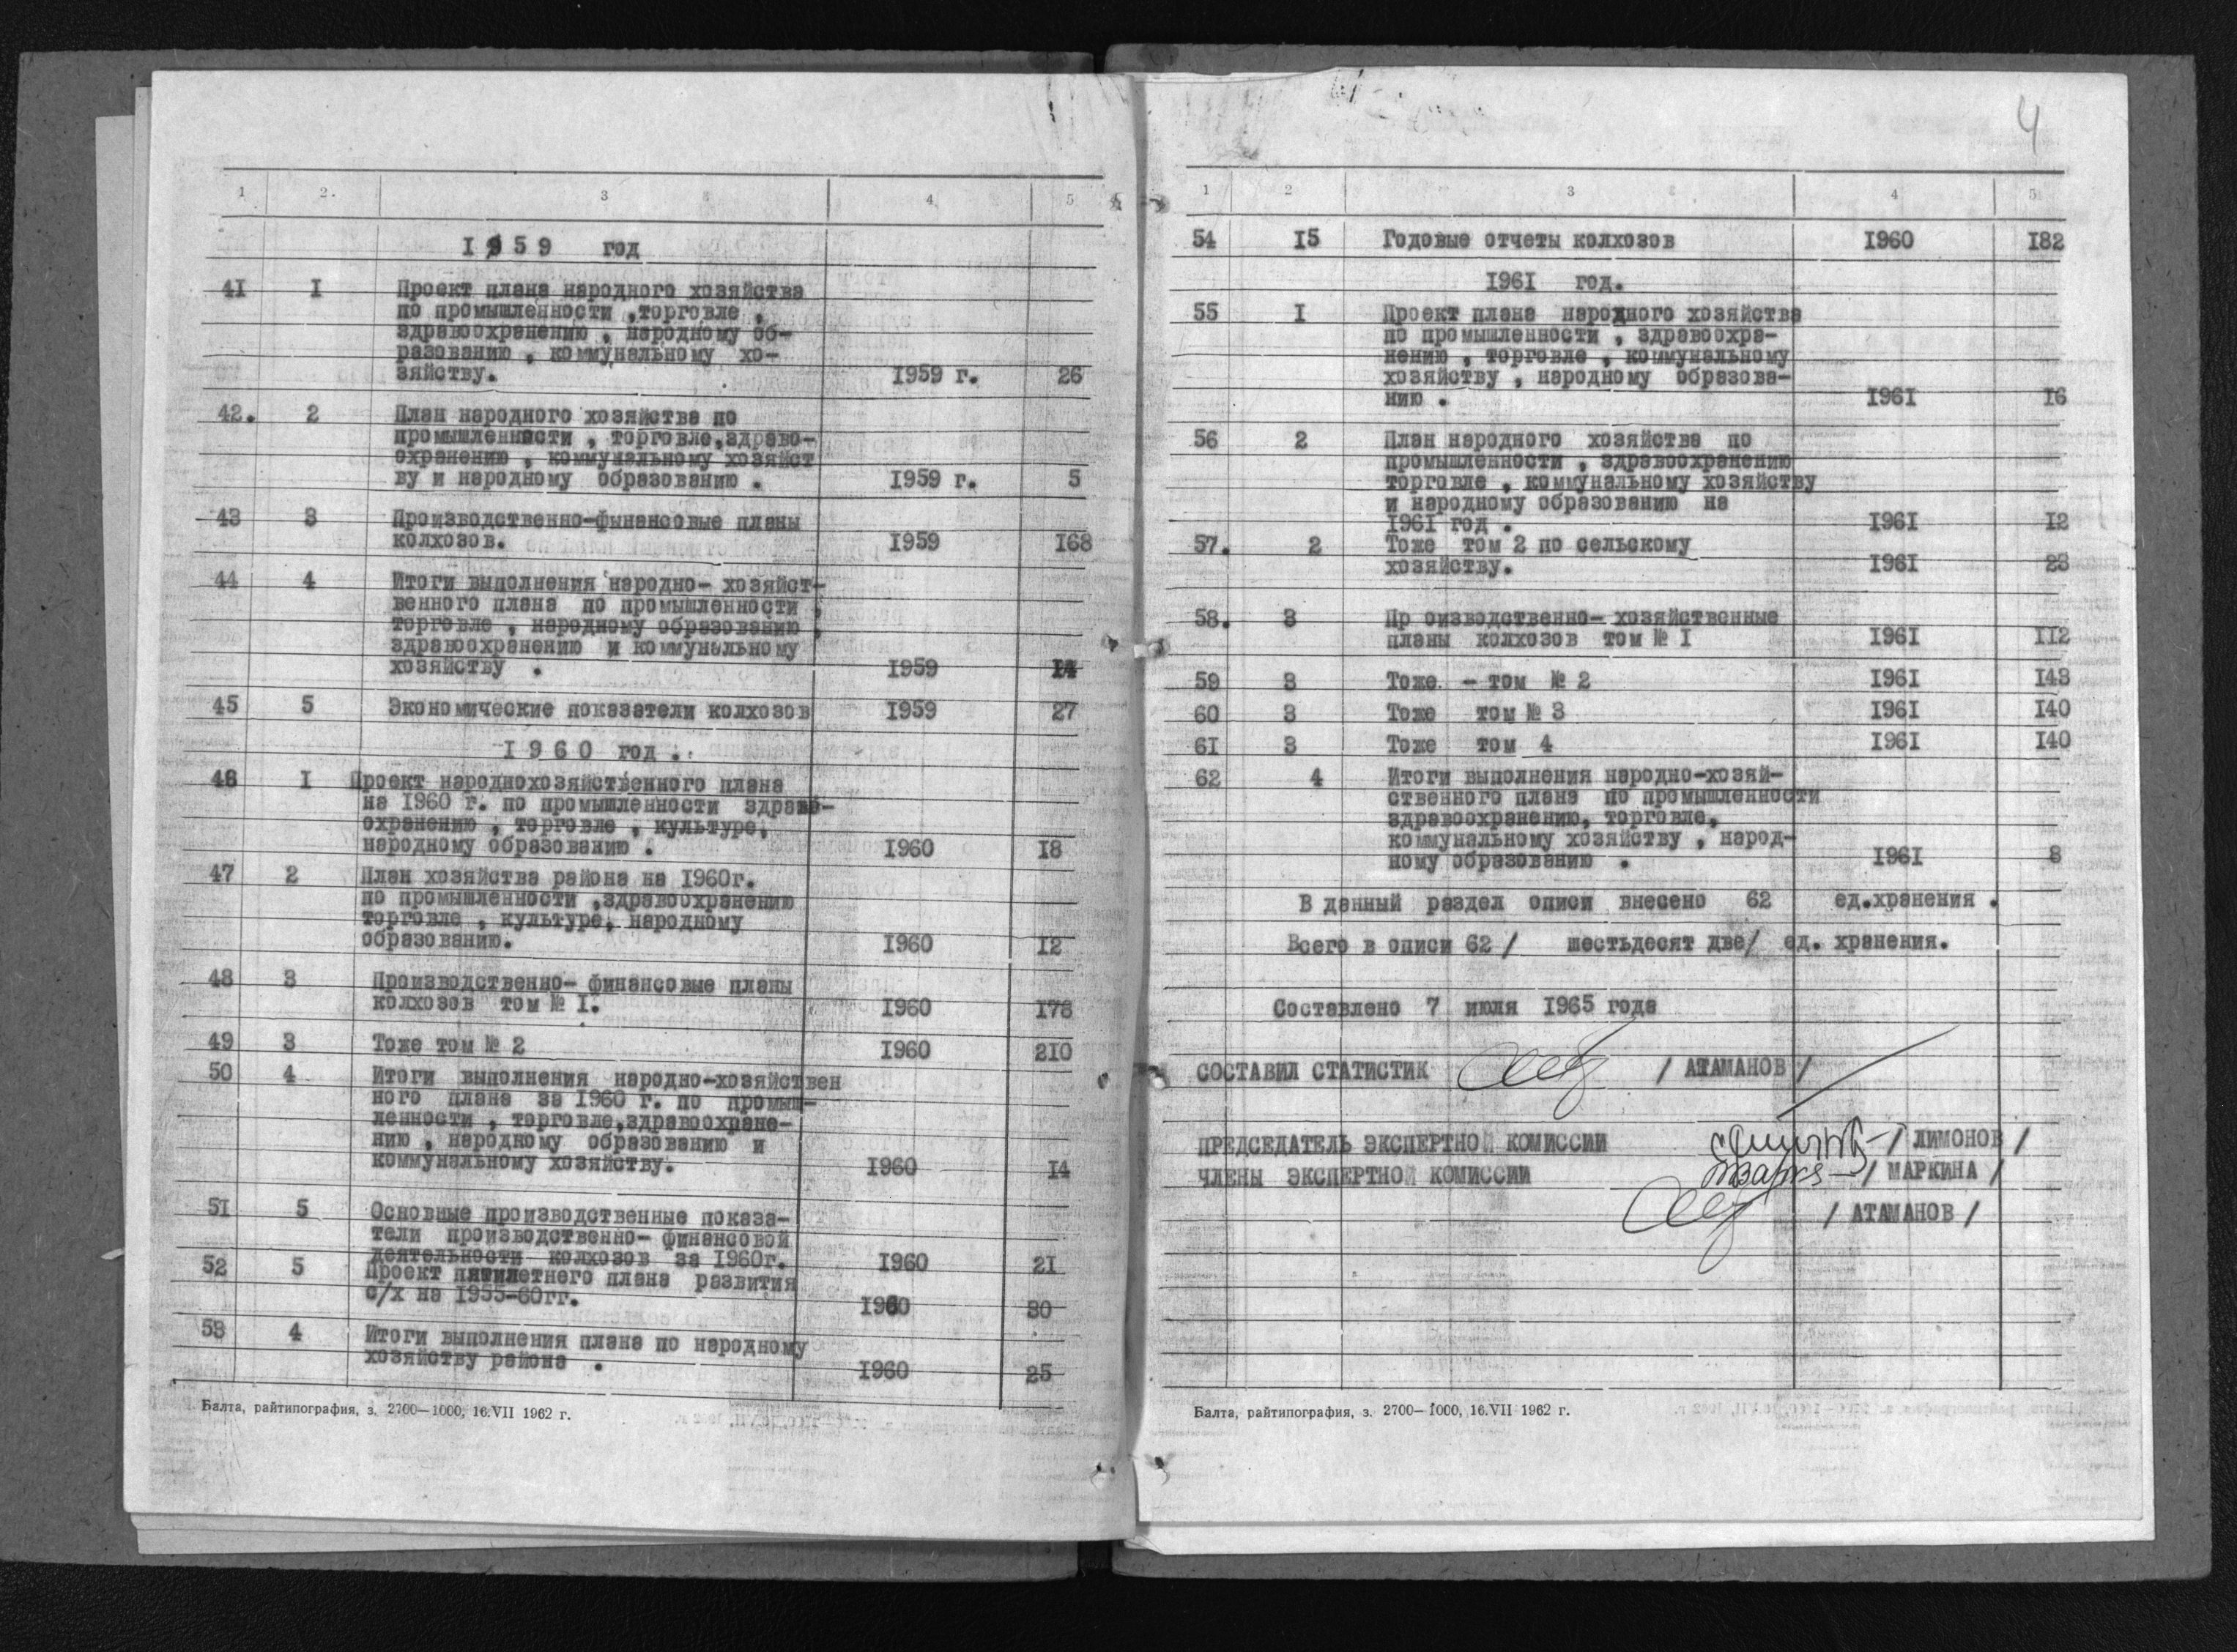 1 2. 3 4 5
1959 год
41 1 Проект плана народного хозяйства
по промышленности ,торговле ,
здравоохранению , народному об-
разованию , коммунальному хо-
зяйству. 1959 г. 26
42. 2 План народного хозяйства по
промышленности , торговле,здраво-
охранению , коммунальному хозяйст
ву и народному образованию . 1959 г. 5
43 3 Производственно-фынансовые планы
колхозов. 1959 168
44 4 Итоги выполнения народно- хозяйст-
венного плана по промышленности ,
торговле , народному образованию ,
здравоохранению и коммунальному
хозяйству . 1959 14
45 5 Экономические показатели колхозов 1959 27
1960 год .
46 1 Проект народнохозяйственного плана
на 1960 г. по промышленности здраво-
охранению , торговле , культуре,
народному образованию . 1960 18
47 2 План хозяйства района на 1960г.
по промышленности ,здравоохранению
торговле , культуре, народному
образованию. 1960 12
48 3 Производственно- финансовые планы
колхозов том № 1. 1960 178
49 3 Тоже том № 2 1960 210
50 4 Итоги выполнения народно-хозяйствен
ного плана за 1960 г. по промыш-
ленности , торговле,здравоохране-
нию , народному образованию и
коммунальному хозяйству. 1960 14
51 5 Основные производственные показа-
тели производственно- финансовой
деятельности колхозов за 1960г. 1960 21
52 5 Проект пятилетнего плана развития
с/х на 1955-60гг. 1960 30
53 4 Итоги выполнения плана по народному
хозяйству района . 1960 25
Балта, райтипография, з. 2700—1000, 16.VII 1962 г.
4
1 2 3 4 5
54 15 Годовые отчеты колхозов 1960 182
1961 год.
55 1 Проект плана народного хозяйства
по промышленности , здравоохра-
нению , торговле , коммунальному
хозяйству , народному образова-
нию . 1961 16
56 2 План народного хозяйства по
промышленности , здравоохранению
торговле , коммунальному хозяйству
и народному образованию на
1961 год . 1961 12
57. 2 Тоже том 2 по сельскому
хозяйству. 1961 28
58. 3 Пр оизводственно- хозяйственные
планы колхозов том № 1 1961 112
59 3 Тоже - том № 2 1961 143
60 3 Тоже том № 3 1961 140
61 3 Тоже том 4 1961 140
62 4 Итоги выполнения народно-хозяй-
ственного плана по промышленности
здравоохранению, торговле,
коммунальному хозяйству , народ-
ному образованию . 1961 8
В данный раздел описи внесено 62 ед.хранения .
Всего в описи 62 / шестьдесят две/ ед. хранения.
Составлено 7 июля 1965 года
СОСТАВИЛ СТАТИСТИК / АТАМАНОВ /
ПРЕДСЕДАТЕЛЬ ЭКСПЕРТНОЙ КОМИССИИ / ЛИМОНОВ /
ЧЛЕНЫ ЭКСПЕРТНОЙ КОМИССИИ / МАРКИНА /
/ АТАМАНОВ /
Балта, райтипография, з. 2700—1000, 16.VII 1962 г.